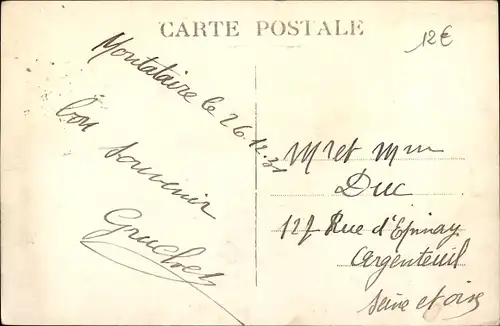 CARTE POSTALE
12€
Montataire le 26.12.31
bon souvenir
Mr et Mme
Duc
127 Rue d'Epinay
Argenteuil
Seine et oise